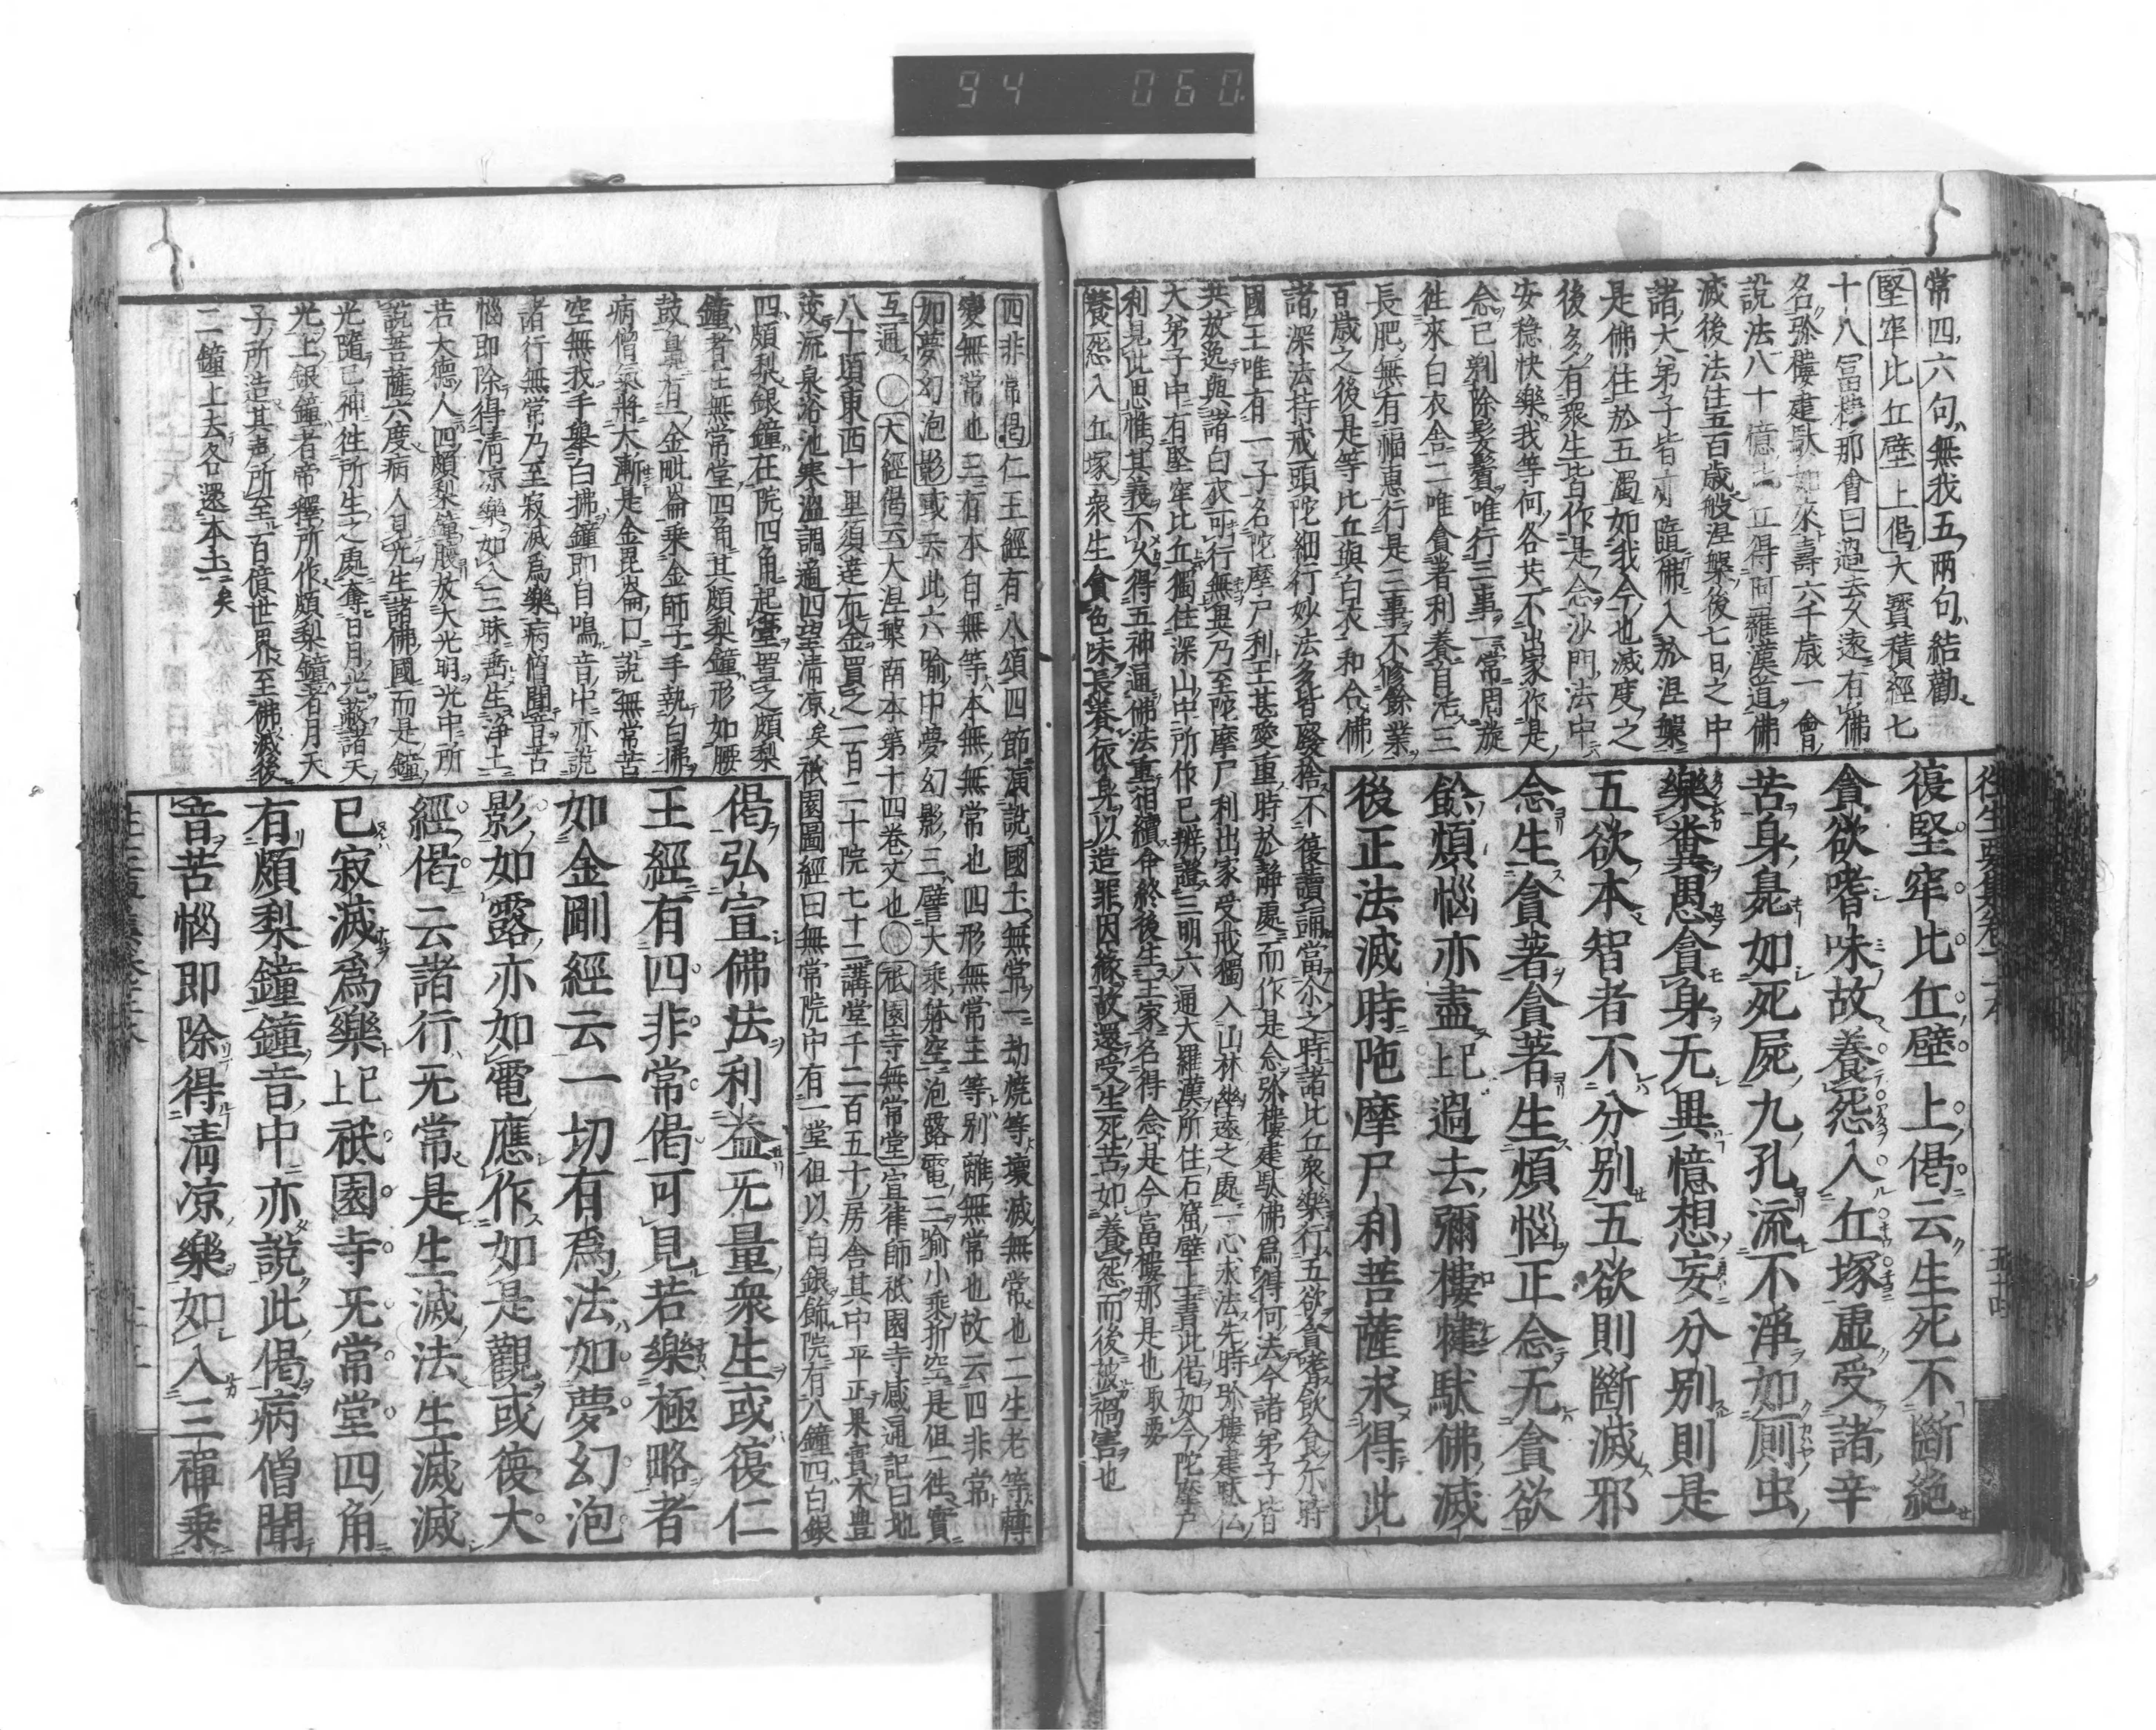 94 060
常四六句無我五兩句結勸
堅牢比丘壁上偈大寳積經七
十八冨樓那會曰過去久遠有佛
名弥樓建馱如來壽六千歳一會
説法八十億比丘得阿羅漢道佛
滅後法住五百歳般涅槃後七日之中
諸大弟子皆亦隨佛入於涅槃
是佛住於五濁如我今也滅度之
後多有衆生皆作是念沙門法中
安穏快樂我等何各共不出家作是
念已剃除髮鬚唯行三事一常周旋
徃來白衣舎二唯貪著利養自活三
長肥無有福惠行是三事不修餘業
百歳之後是等比丘與白衣和合佛
諸深法持戒頭陀細行妙法多皆廢捨不復讀誦當尒之時諸比丘衆樂行五欲貪嗜飲食尒時
國王唯有一子名陀摩尸利王甚愛重時於靜處而作是念弥樓建馱佛為得何法今諸弟子皆
共放逸與諸白衣可行無異乃至陀摩尸利出家受戒獨入山林幽遠之處一心求法先時弥樓建馱仏
大弟子中有堅牢比丘獨住深山中所作已辨證三明六通大羅漢所住石窟壁上書此偈如今陀摩尸
利見此思惟其義不久得五神通佛法重相續命終後生王家名得念是今富樓那是也取要
養怨入丘塚衆生貪色味長養依身以造罪因縁故還受生死苦如養怨而後被禍害也
復堅牢比丘壁上偈云生死不斷絶
貪欲嗜味故養怨入丘塚虚受諸辛
苦身臰如死屍九孔流不淨如厠虫
樂糞愚貪身无異憶想妄分別則是
五欲本智者不分別五欲則斷滅邪
念生貪著貪著生煩惱正念无貪欲
餘煩惱亦盡已上過去彌樓犍馱佛滅
後正法滅時陁摩尸利菩薩求得此
往生要集卷
四非常偈仁王經有八頌四節演説國土無常一劫燒等壞滅無常也二生老等轉
變無常也三有本自無等本無無常也四形無常主等別離無常也故云四非常
如夢幻泡影或云此六喻中夢幻影三譬大乘躰空泡露電三喻小乘折空是但一徃實
互通大經偈云大涅槃南本第十四卷文也祇園寺無常堂宣律師祇園寺感通記曰地
八十頃東西十里須達布金買之一百二十院七十二講堂千二百五十房舎其中平正果實木豊
茂流泉浴池寒温調適四望清凉矣祇園圖經曰無常院中有一堂但以白銀飾院有八鐘四白銀
四頗梨銀鐘在院四角起臺置之頗梨
鐘者在無常堂四角其頗梨鐘形如腰
鼓鼻有一金毗崙乘金師子手執白拂
病僧氣將大漸是金毘崙口説無常苦
空無我手擧白拂鐘即自鳴音中亦説
諸行無常乃至寂滅為樂病僧聞音苦
惱即除得清凉樂如入三昧垂生淨土
若大德人四頗梨鐘腰放大光明光中所
説菩薩六度病人見光生諸佛國而是鐘
光隨已神徃所生之處奪日月光蔽諸天
光上銀鐘者帝釋所作頗梨鐘者月天
子所造其声所至百億世界至佛滅後
二鐘上去各還本土矣
偈弘宣佛法利益无量衆生或復仁
王經有四非常偈可見若樂極略者
如金剛經云一切有爲法如夢幻泡
影如露亦如電應作如是觀或復大
經偈云諸行无常是生滅法生滅滅
已寂滅爲樂已上祇園寺无常堂四角
有頗梨鐘鐘音中亦説此偈病僧聞
音苦惱即除得清凉樂如入三禪乗